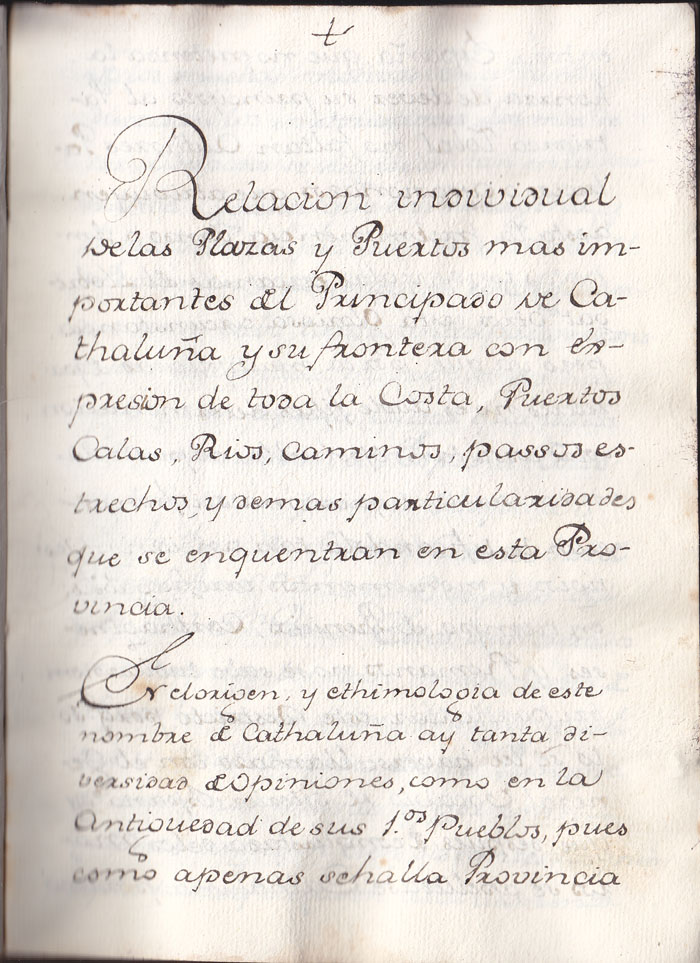 Relacion individual
de las Plazas y Puertos mas im-
portantes del Principado de Ca-
thaluña y su frontera con ex-
presion de toda la Costa, Puertos
Calas, Rios, Caminos, passos es-
trechos, y demas particularidades
que se enquentran en esta Pro-
vincia.
En el origen, y ethimologia de este
nombre de Cathaluña ay tanta di-
versidad de Opiniones, como en la
Antiguedad de sus 1.os Pueblos, pues
como apenas sehalla Provincia